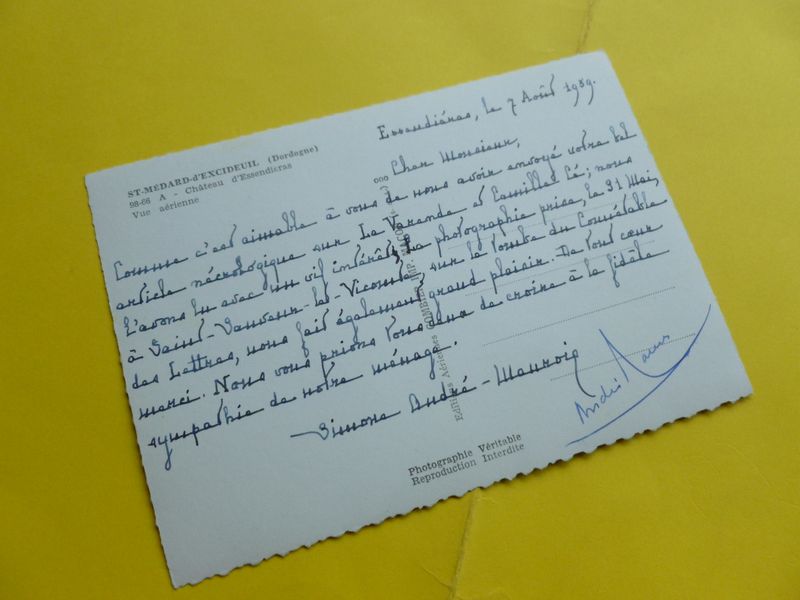 ST-MÉDARD-d'EXCIDEUIL (Dordogne)
98-66 A - Château d'Essendieras
Vue aérienne
Essendiéras, le 7 Août 1959.
Cher Monsieur,
Comme c'est aimable à vous de nous avoir envoyé votre bel
article nécrologique sur La Varende et Camille Cé; nous
l'avons lu avec un vif intérêt. La photographie prise, le 31 Mai,
à Saint-Sauveur-le-Vicomte, sur la tombe du Connétable
des Lettres, nous fait également grand plaisir. De tout cœur
merci. Nous vous prions tous deux de croire à la fidèle
sympathie de notre ménage.
Simone André-Maurois
André Maurois
Editions Aériennes COMBIER IMP. MACON
Photographie Véritable
Reproduction Interdite